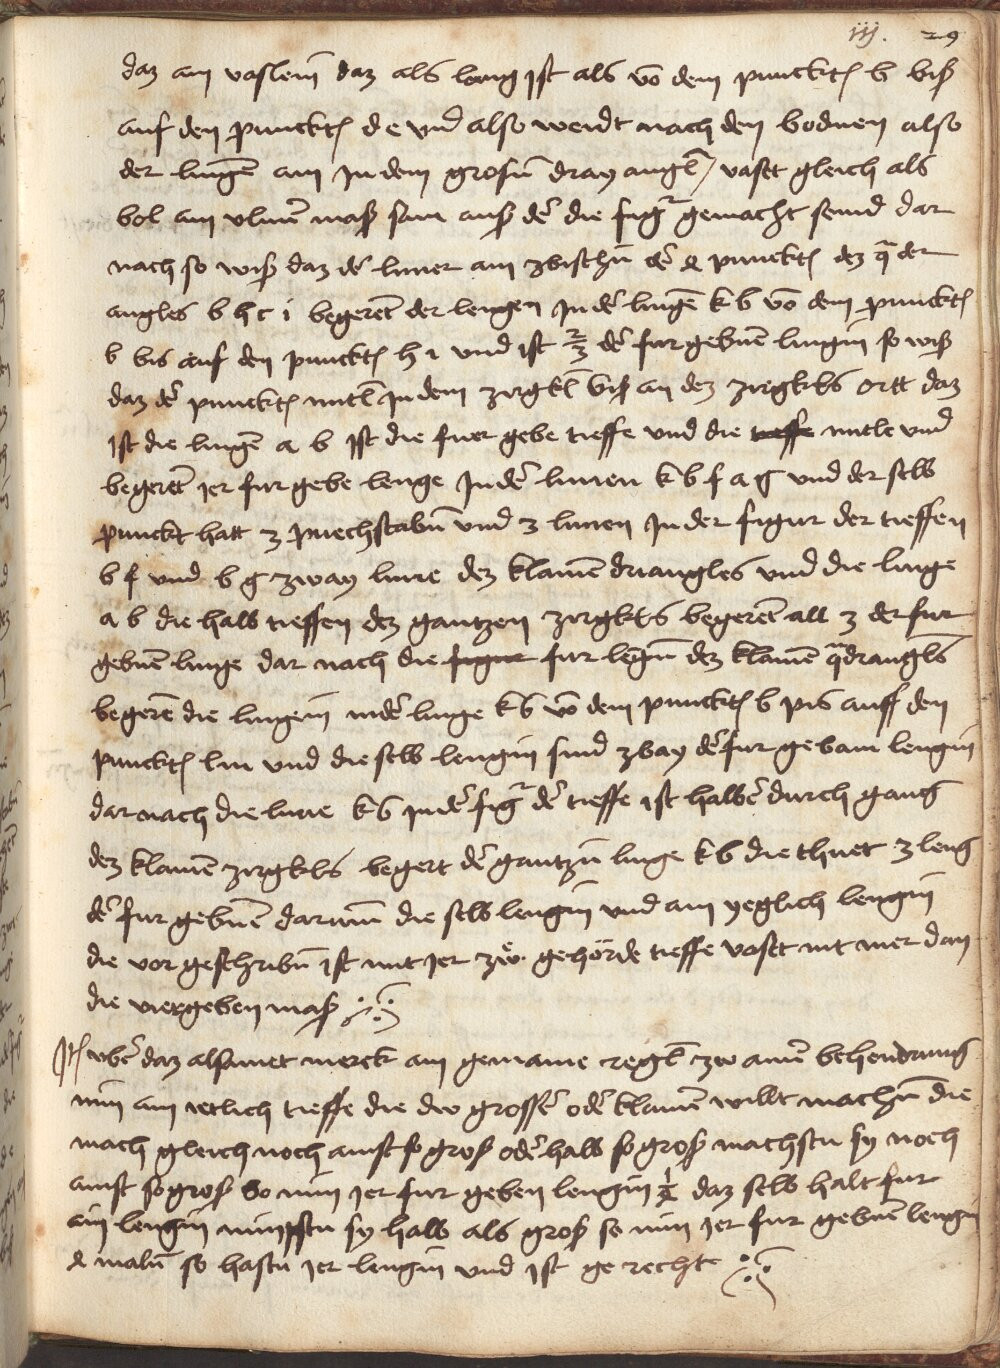 iij. 29
daz ain vaslein daz als lang ist als vo dem punckt b bis
auf den punckt d e vnd also werdt nach den bodnen also
der lingen ain in dem grosen drayangl vaset gleich als
bol ain vlner mas sain aus der die figur gemacht seind dar
nach so wis daz der liner ain zbischn der 2 punckt dez q der
angles b h c i begeret der lengen in der lingen k b vo dem punckt
b bis auf den punckt h i vnd ist 2/3 der fur gebnen lingin so wis
daz der punckt mitl in dem zirgkl bis an dez zirgkls ortt daz
ist die lingen a b ist die fuer gebe tieffe vnd die mitle vnd
begeret ier fur gebe lenge in der linen k b f a g vnd der selb
punckt hatt 3 puechstabn vnd 3 linen in der figur der tieffen
b f vnd b g zway linie dez klainen driangles vnd die linge
a b die halb tieffen dez gantzen zirgkls begeret all 3 der fur
gebnen linge dar nach die figur fur legun dez klainen qdrangls
begeren die lingein in der linge k b vo dem punckt b pis auff den
punckt l m vnd die selb lengin sind zbay der fur geben lengin
dar nach die linie k b in der fig der tieffe ist halber durch gang
dez klainen zirgkls begert der gantzn linge k b die thuet 3 leng
der fur gebnen darum die selb lengin vnd ain yeglich lengin
die vor geschribn ist mit ier zw gehörde tieffe vaset nit mer dan
die viergeben mas
It vber daz alsamet merck ain gemaine regl zw ainer behendung
nim ain ietlich tieffe die dw grosser oder klainer willt machn die
mach gleich noch ainst so gros oder halb so gros machstu sy noch
ainst so gros so nim ier fur geben lengin 1/2 daz selb halt fur
ain lengin nimpstu sy halb als gros so nim ier fur gebnen lengin
2 maln so hastu ier lengin vnd ist gerechte